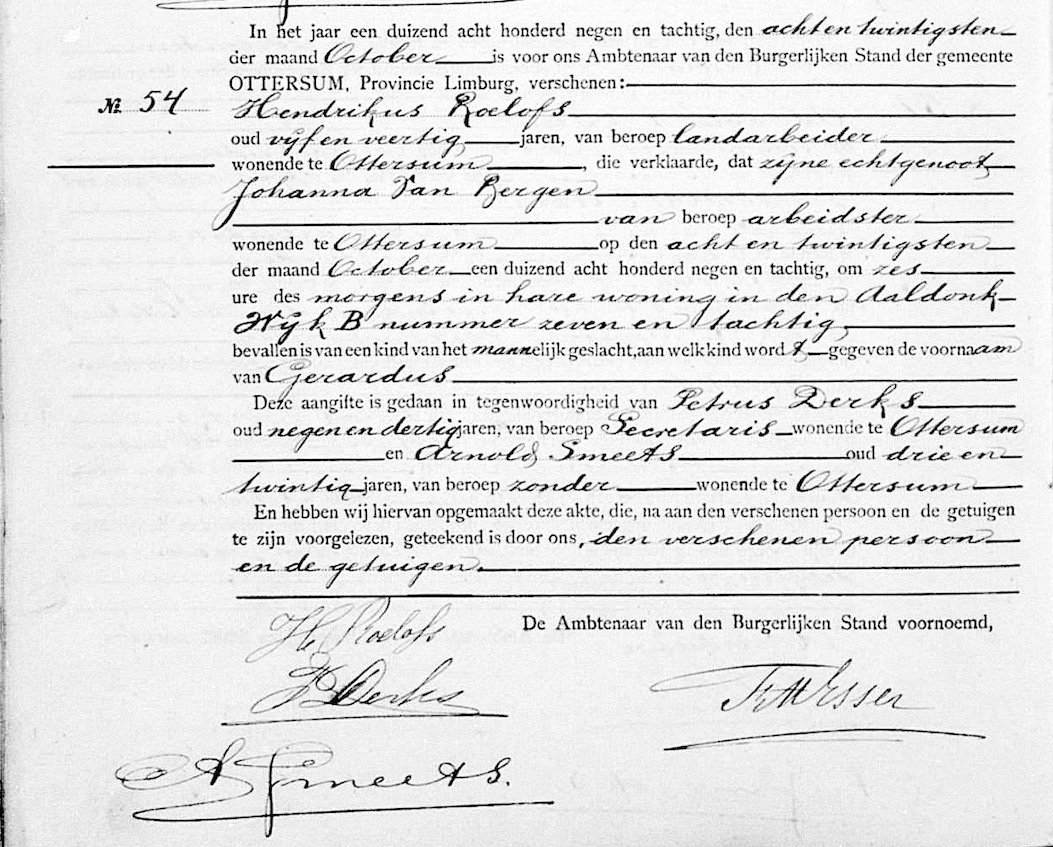 In het jaar een duizend acht honderd negen en tachtig, den acht en twintigsten
der maand October is voor ons Ambtenaar van den Burgerlijken Stand der gemeente
OTTERSUM, Provincie Limburg, verschenen:
No. 54
Hendrikus Roelofs
oud vijf en veertig jaren, van beroep landarbeider
wonende te Ottersum, die verklaarde, dat zijne echtgenoot
Johanna Van Bergen
van beroep arbeidster
wonende te Ottersum op den acht en twintigsten
der maand October een duizend acht honderd negen en tachtig, om zes
ure des morgens in hare woning in den Aaldonk
Wijk B nummer zeven en tachtig,
bevallen is van een kind van het mannelijk geslacht, aan welk kind wordt gegeven de voornaam
van Gerardus
Deze aangifte is gedaan in tegenwoordigheid van Petrus Derks
oud negen en dertig jaren, van beroep Secretaris wonende te Ottersum
en Arnold Smeets oud drie en
twintig jaren, van beroep zonder wonende te Ottersum
En hebben wij hiervan opgemaakt deze akte, die, na aan den verschenen persoon en de getuigen
te zijn voorgelezen, geteekend is door ons, den verschenen persoon
en de getuigen.
De Ambtenaar van den Burgerlijken Stand voornoemd,
H Roelofs
P Derks
Esser
A Smeets.